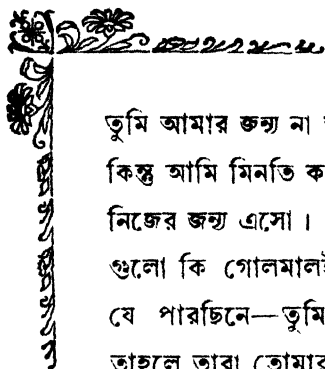 তুমি আমার জন্য না
কিন্তু আমি মিনতি ক
নিজের জন্য এসো ।
গুলো কি গোলমাল
যে পারছিনে—তুমি
তাহলে তারা তোমার